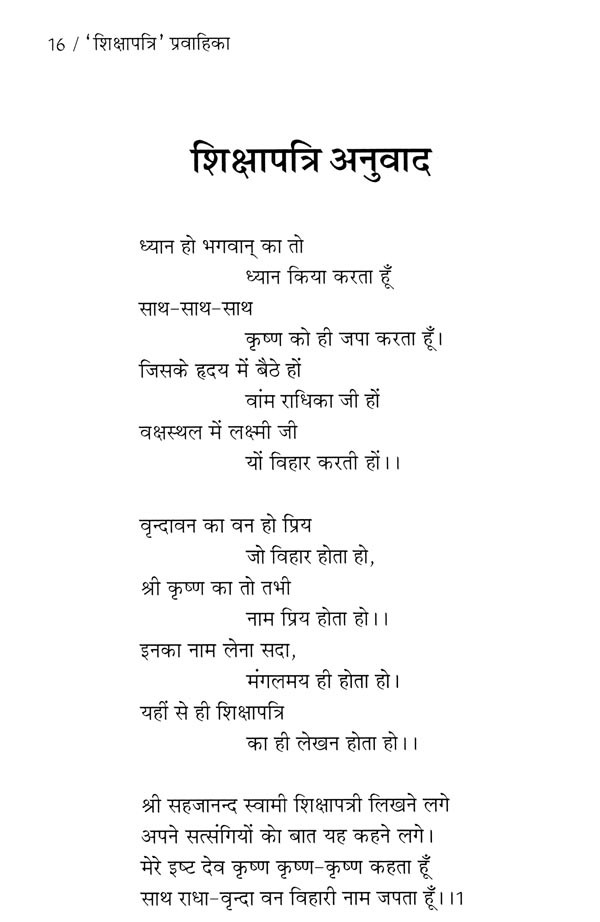 16 / ‘शिक्षापत्रि’ प्रवाहिका
शिक्षापत्रि अनुवाद
ध्यान हो भगवान् का तो
ध्यान किया करता हूँ
साथ-साथ-साथ
कृष्ण को ही जपा करता हूँ।
जिसके हृदय में बैठे हों
वांम राधिका जी हों
वक्षस्थल में लक्ष्मी जी
यों विहार करती हों।।
वृन्दावन का वन हो प्रिय
जो विहार होता हो,
श्री कृष्ण का तो तभी
नाम प्रिय होता हो।।
इनका नाम लेना सदा,
मंगलमय ही होता हो।
यहीं से ही शिक्षापत्रि
का ही लेखन होता हो।।
श्री सहजानन्द स्वामी शिक्षापत्री लिखने लगे
अपने सत्संगियों केा बात यह कहने लगे।
मेरे इष्ट देव कृष्ण कृष्ण-कृष्ण कहता हूँ
साथ राधा-वृन्दा वन विहारी नाम जपता हूँ।।1